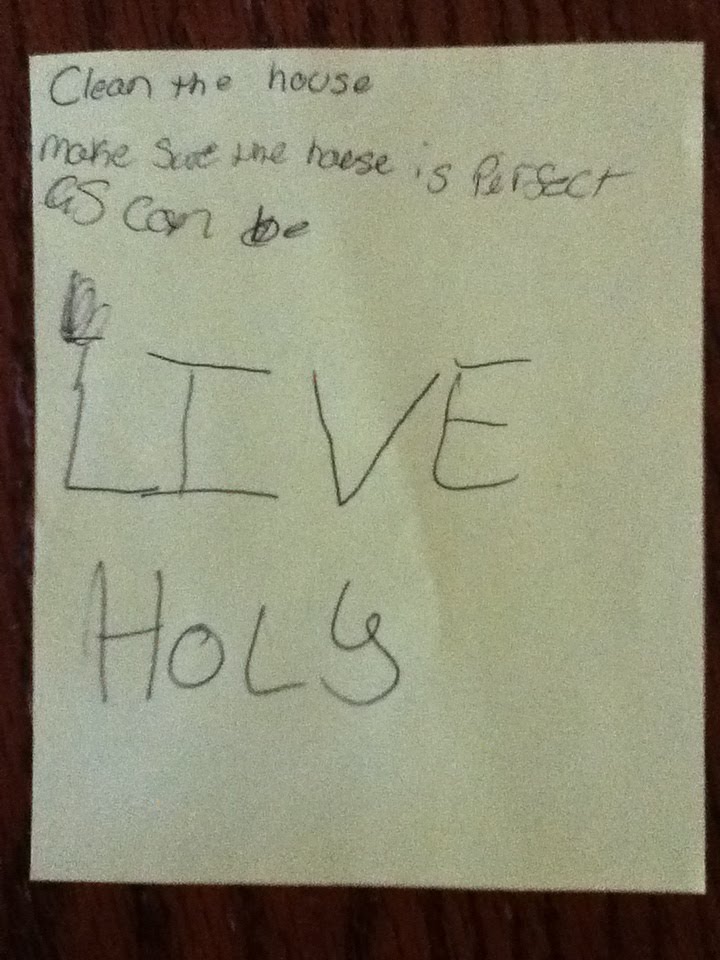 Clean the house
make sure the house is Perfect
as can be
LIVE
HOLY